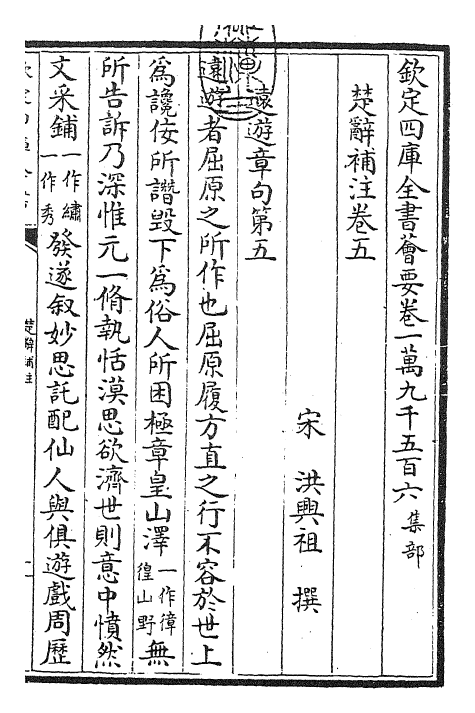 欽定四庫全書薈要卷一萬九千五百六集部
楚辭補注卷五
宋　洪興祖　撰
遠遊章句第五
遠遊者屈原之所作也屈原履方直之行不容於世上
為讒佞所譖毀下為俗人所困極章皇山澤一作徨山野無
所告訴乃深惟元一脩執恬漠思欲濟世則意中憤然
文采鋪一作繡一作秀發遂叙妙思託配仙人與俱遊戲周歷
楚辭補注